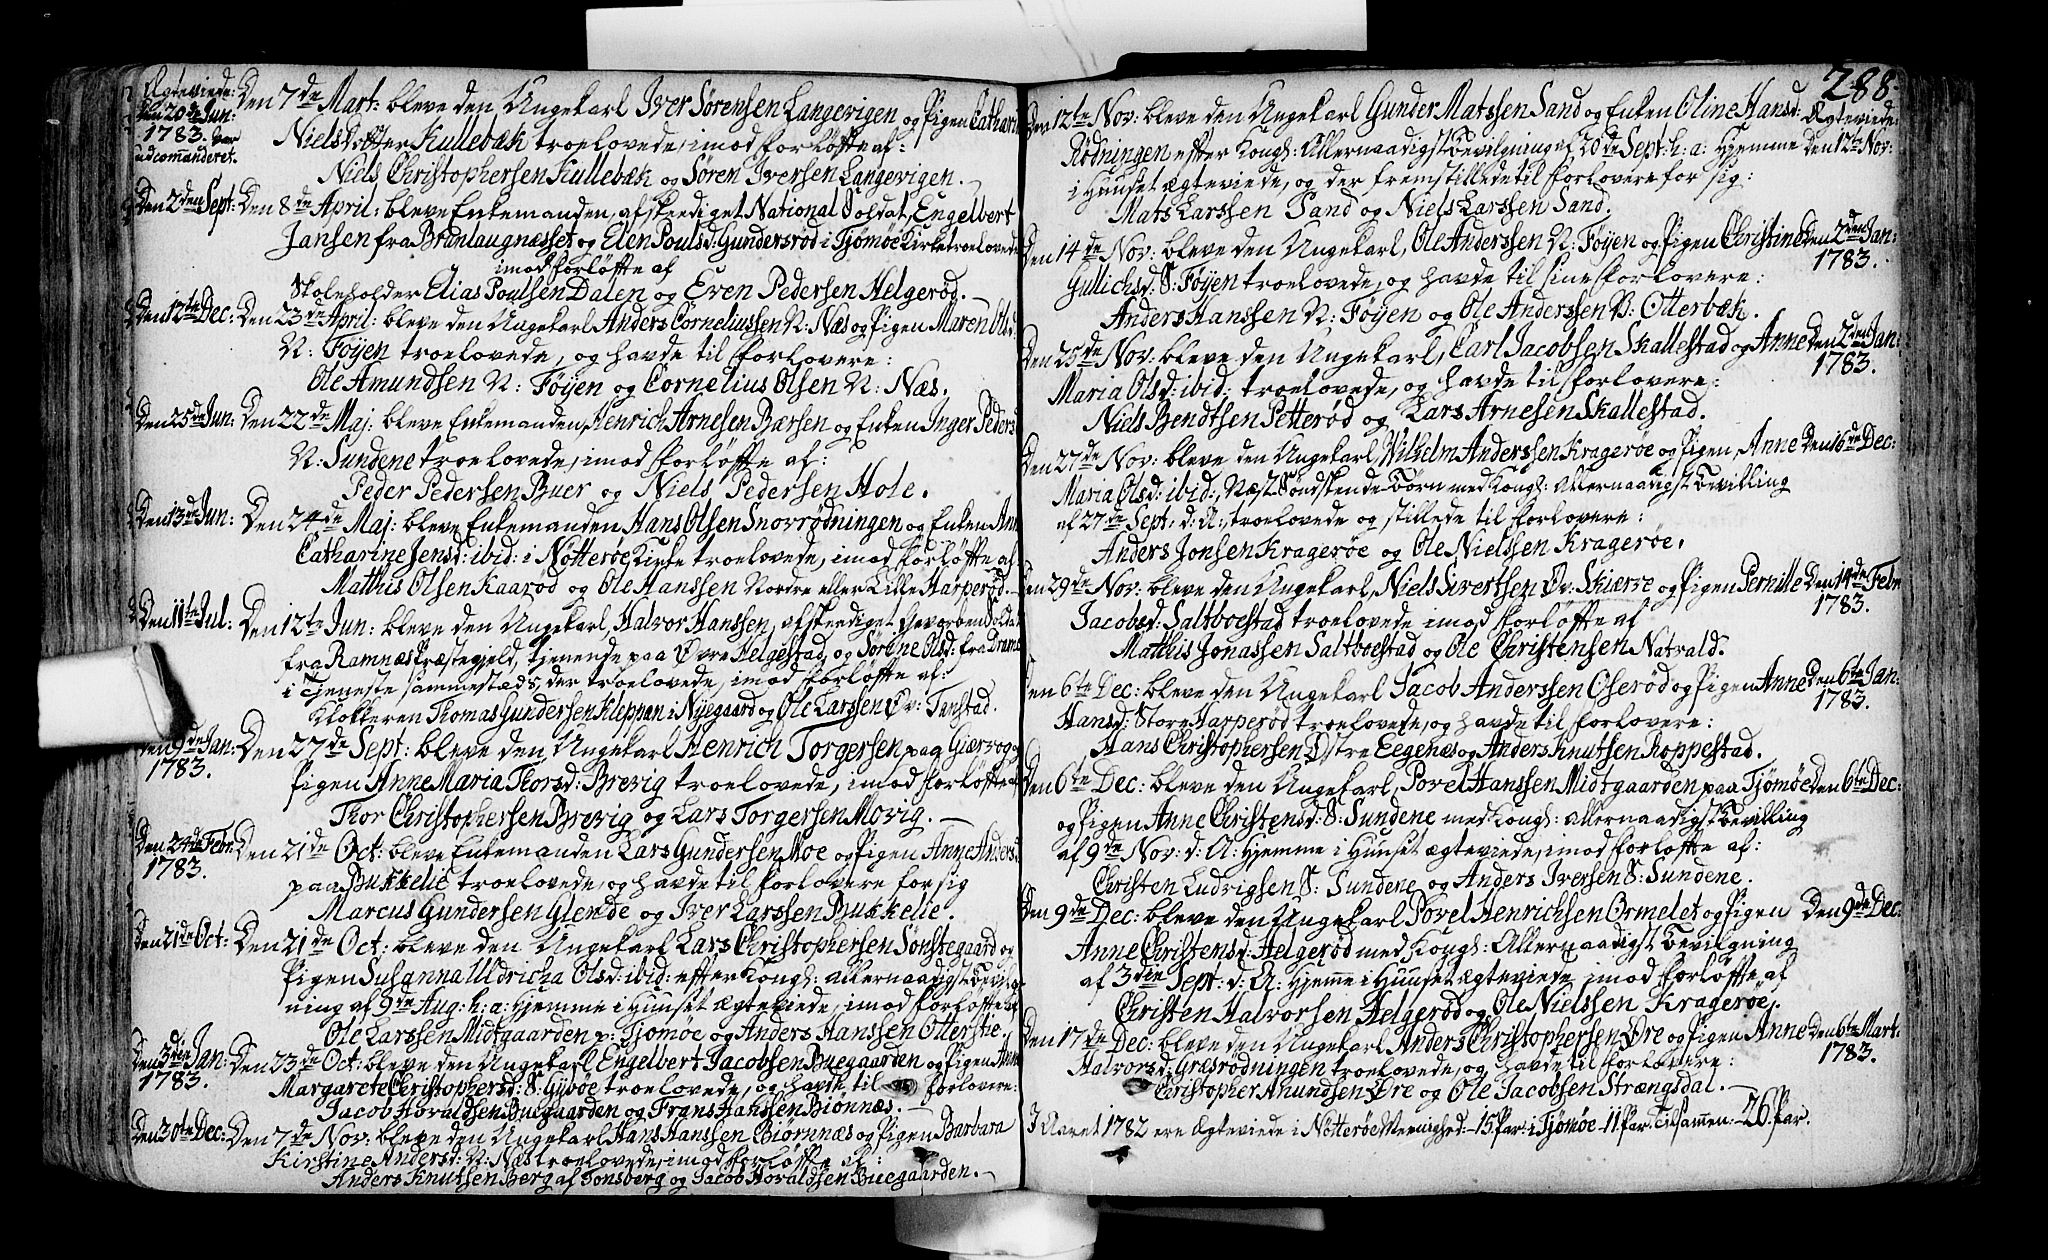 Ægteviede:
den 20de Jun:
1783. var
udcomanderet.
Den 7de Mart: bleve den Ungekarl Iver Sørensen Langevigen og Pigen Cathari
Nielsdotter Kullebæk troelovede, imod forløfte af:
Niels Christophersen Kullebæk og Søren Iversen Langevigen.
Den 2den Sept: Den 8de April: bleve Enkemanden, afskeediget National Soldat, Engelbert
Jansen fra Brunlaugnæsset og Elen Poulsd: Gundersrød i Tjømøe Kirke troelovede
imod forløfte af
Skoleholder Elias Poulsen Dalen og Even Pedersen Helgerød.
Den 12te Dec: Den 23de April: bleve den Ungekarl Anders Corneliussen N: Næs og Pigen Maren Olsd:
N: Føyen troelovede, og havde til forlovere:
Ole Amundsen N: Føyen og Cornelius Olsen N: Næs.
Den 25de Jun: Den 22de Maj: bleve Enkemanden, Henrich Arnesen Bærsen og Enken Inger Peders
N: Sundene troelovede, imod forløfte af:
Peder Pedersen Buer og Niels Pedersen Hole.
Den 13de Jun: Den 24de Maj: bleve Enkemanden Hans Olsen Snorrødningen og Enken Ann
Catharine Jensd: ibid: i Nøtterøe Kirke troelovede, imod forløfte af
Matthis Olsen Kaarød og Ole Hanssen Nordre eller Lille Harperød.
Den 11te Jul: Den 12te Jun: bleve den Ungekarl Halvor Hanssen, afskeediget Gevorben Solda
fra Ramnæs Præstegjeld, tjenende paa Øvre Helgestad, og Sørine Olsd: fra Dram
i Tjeneste sammesteds, der troelovede, imod forløfte af:
Klokkeren Thomas Gundersen Kleppan i Nyegaard og Ole Larssen Øv: Tanstad.
Den 9de Jan: Den 27de Sept: bleve den Ungekarl Henrich Torgersen paa Giærzog
1783.
Pigen Anne Maria Thorsd: Brevig troelovede, imod forløfte
Thor Christophersen Brevig og Lars Torgersen Movig.
Den 24de Febr: Den 21de Oct: bleve Enkemanden Lars Gundersen Moe og Pigen Anne Anders
1783.
paa Bukkelie troelovede, og havde til forlovere for sig
Marcus Gundersen Glende og Iver Larssen Bukkelie.
Den 21de Oct: Den 21de Oct: bleve den Ungekarl Lars Christophersen Sønstegaard og
Pigen Susanna Uldricha Olsd: ibid: efter Kongl: allernaadigst Bevilg
ning af 9de Aug: h: a: hjemme i Huuset ægteviede, imod forløfte af
Ole Larssen Midtgaarden p: Tjømøe og Anders Hanssen Otterstie.
Den 3die Jan: Den 23de Oct: bleve den Ungekarl Engelbert Jacobsen Buegaarden og Pigen Ann
1783.
Margarete Christophersd: S: Gybøe troelovede, og havde til forlovere:
Jacob Horaldsen Buegaarden og Frans Hanssen Biønnæs.
Den 30te Dec: Den 7de Nov: bleve den Ungekarl Hans Hanssen Biørnnæs og Pigen Barbara
Kirstine Andersd: N: Næs troelovede, imod forløfte af:
Anders Knutsen Berg af Tønsberg og Jacob Horaldsen Buegaarden.
288.
Den 12te Nov: bleve den Ungekarl Gunder Matssen Sand og Enken Oline Hansd: Ægteviede
Rødningen efter Kongl: Allernaadigst Bevilgning af 20de Sept: h: a: hjemme den 12te Nov:
i Huuset ægteviede, og der fremstillede til forlovere for sig:
Mats Larssen Sand og Niels Larssen Sand.
Den 14de Nov: bleve den Ungekarl, Ole Anderssen N: Føyen og Pigen Christine Den 2den Jan:
1783.
Gullichsd: S: Føyen troelovede, og havde til sine forlovere:
Anders Hanssen N: Føyen og Ole Anderssen N: Otterbæk.
Den 25de Nov: bleve den Ungekarl, Carl Jacobsen Skallestad og Anne Den 2den Jan:
1783.
Maria Olsd: ibid: troelovede, og havde til forlovere:
Niels Bendtsen Petterød og Lars Arnesen Skallestad.
Den 27de Nov: bleve den Ungekarl, Wilhelm Anderssen Kragerøe og Pigen, Anne Den 16de Dec:
Maria Olsd: ibid:, Næst-Søndskende-Børn med Kongl: allernaadigst Bevilling
af 27de Sept: d: A:, troelovede og stillede til forlovere:
Anders Jonsen Kragerøe og Ole Nielssen Kragerøe.
Den 29de Nov: bleve den Ungekarl, Niels Sivertsen Øv: Skiærve og Pigen Pernille Den 14de Febr:
1783.
Jacobsd: Saltboestad troelovede imod forløfte af
Matthis Jonassen Saltboestad og Ole Christensen Natvald.
Den 6te Dec: bleve den Ungekarl Jacob Anderssen Oserød og Pigen Anne Den 6te Jan:
1783.
Hansd: Store Harperød troelovede, og havde til forlovere:
Hans Christophersen Østre Eegenæs og Anders Knutsen Roppestad.
Den 6te Dec: bleve den Ungekarl, Povel Hanssen Midtgaarden paa Tjømøe Den 6te Dec:
og Pigen Anne Christensd: S: Sundene med Kongl: allernaadigst Bevilling
af 9de Nov: d: A: hjemme i Huuset ægteviede, imod forløfte af:
Christen Ludvigsen S: Sundene og Anders Iversen S: Sundene.
Den 9de Dec: bleve den Ungekarl Povel Henrichsen Ormelet og Pigen Den 9de Dec:
Anne Christensd: Helgerød med Kongl: Allernaadigst Bevilgning
af 3die Sept: d: A: hjemme i Huuset ægteviede imod forløfte af
Christen Halvorsen Helgerød og Ole Nielssen Kragerøe.
Den 17de Dec: bleve den Ungekarl Anders Christophersen Øre og Pigen Anne Den 6te Mart:
1783.
Halvorsd: Græsrødningen troelovede, og havde til forlovere:
Christopher Anundsen Øre og Ole Jacobsen Strængsdal.
I Aaret 1782 ere Ægteviede i Nøtterøe Menighed - 15 Par. i Tjømøe - 11 Par. Tilsamen: - 26 Par.